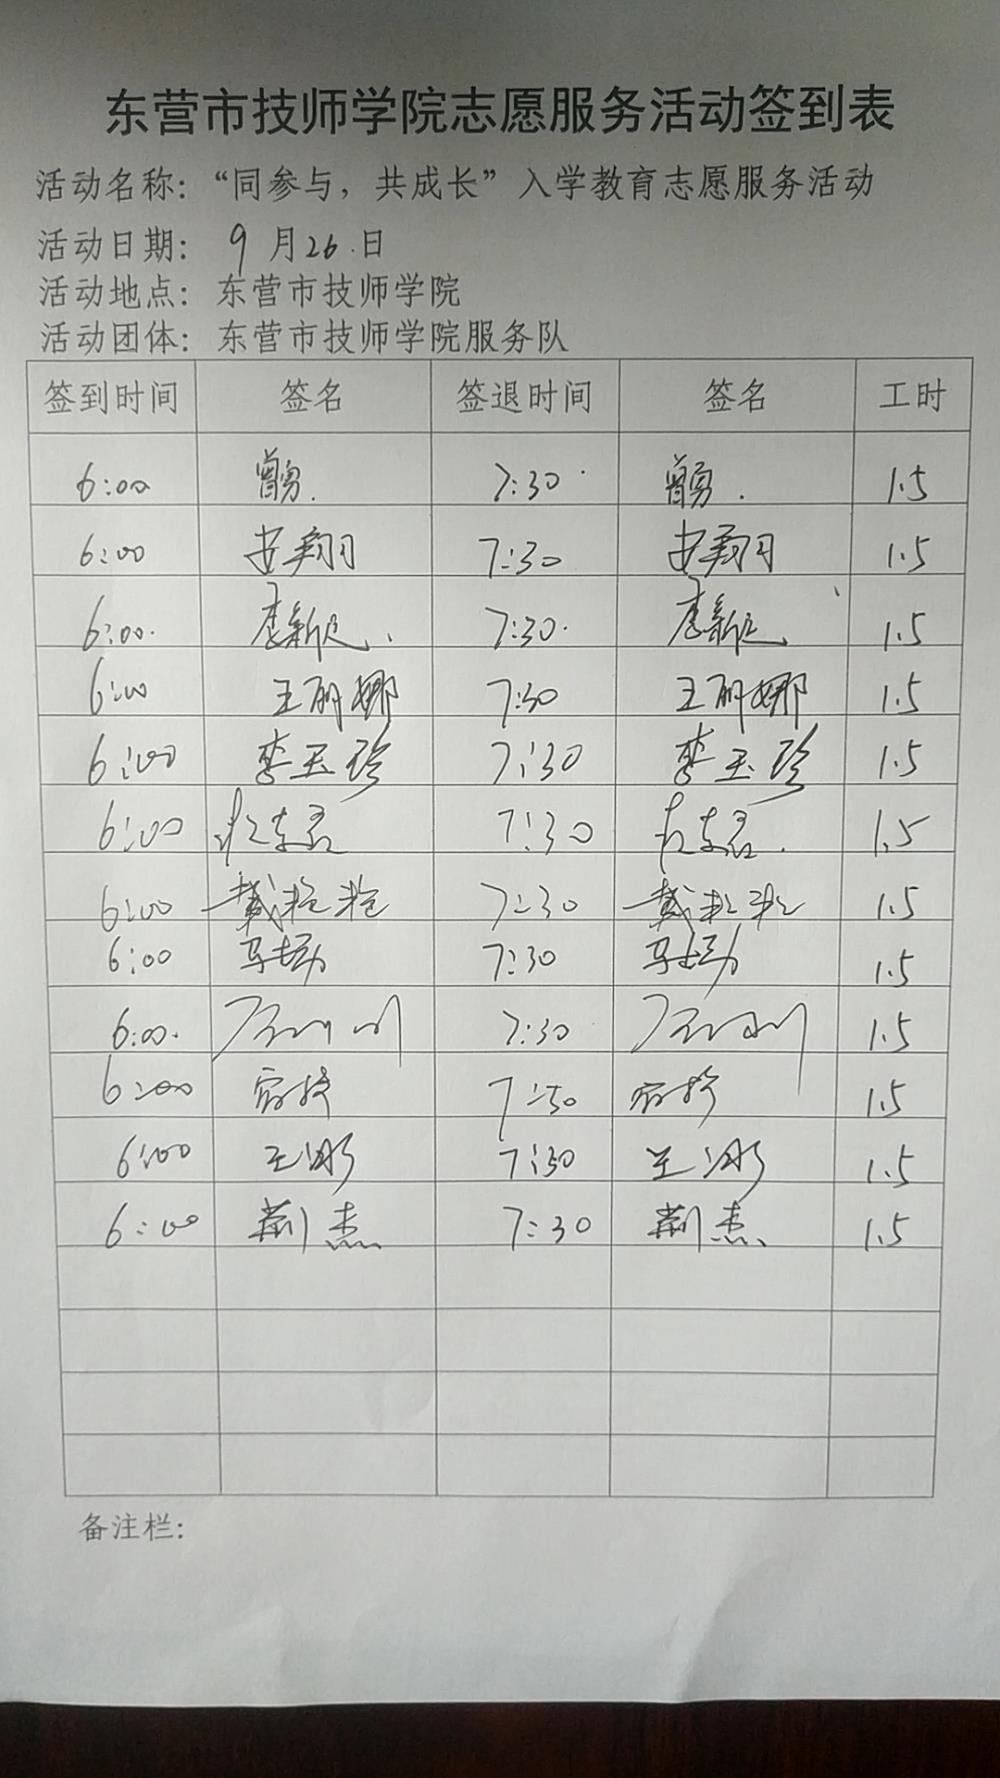 东营市技师学院志愿服务活动签到表
活动名称：“同参与，共成长”入学教育志愿服务活动
活动日期： 9 月26.日
活动地点：东营市技师学院
活动团体：东营市技师学院服务队
签到时间 签名 签退时间 签名 工时
6:00 曾勇. 7:30 曾勇. 1.5
6:00 安翔 7:30 安翔 1.5
6:00. 7:30. 1.5
6:00 王丽娜 7:30 王丽娜 1.5
6:00 李玉珍 7:30 李玉珍 1.5
6:00 7:30 1.5
6:00 7:30 1.5
6:00 7:30 1.5
6:00. 7:30 1.5
6:00 7:30 1.5
6:00 7:30 1.5
6:00 荆杰 7:30 荆杰 1.5
备注栏：